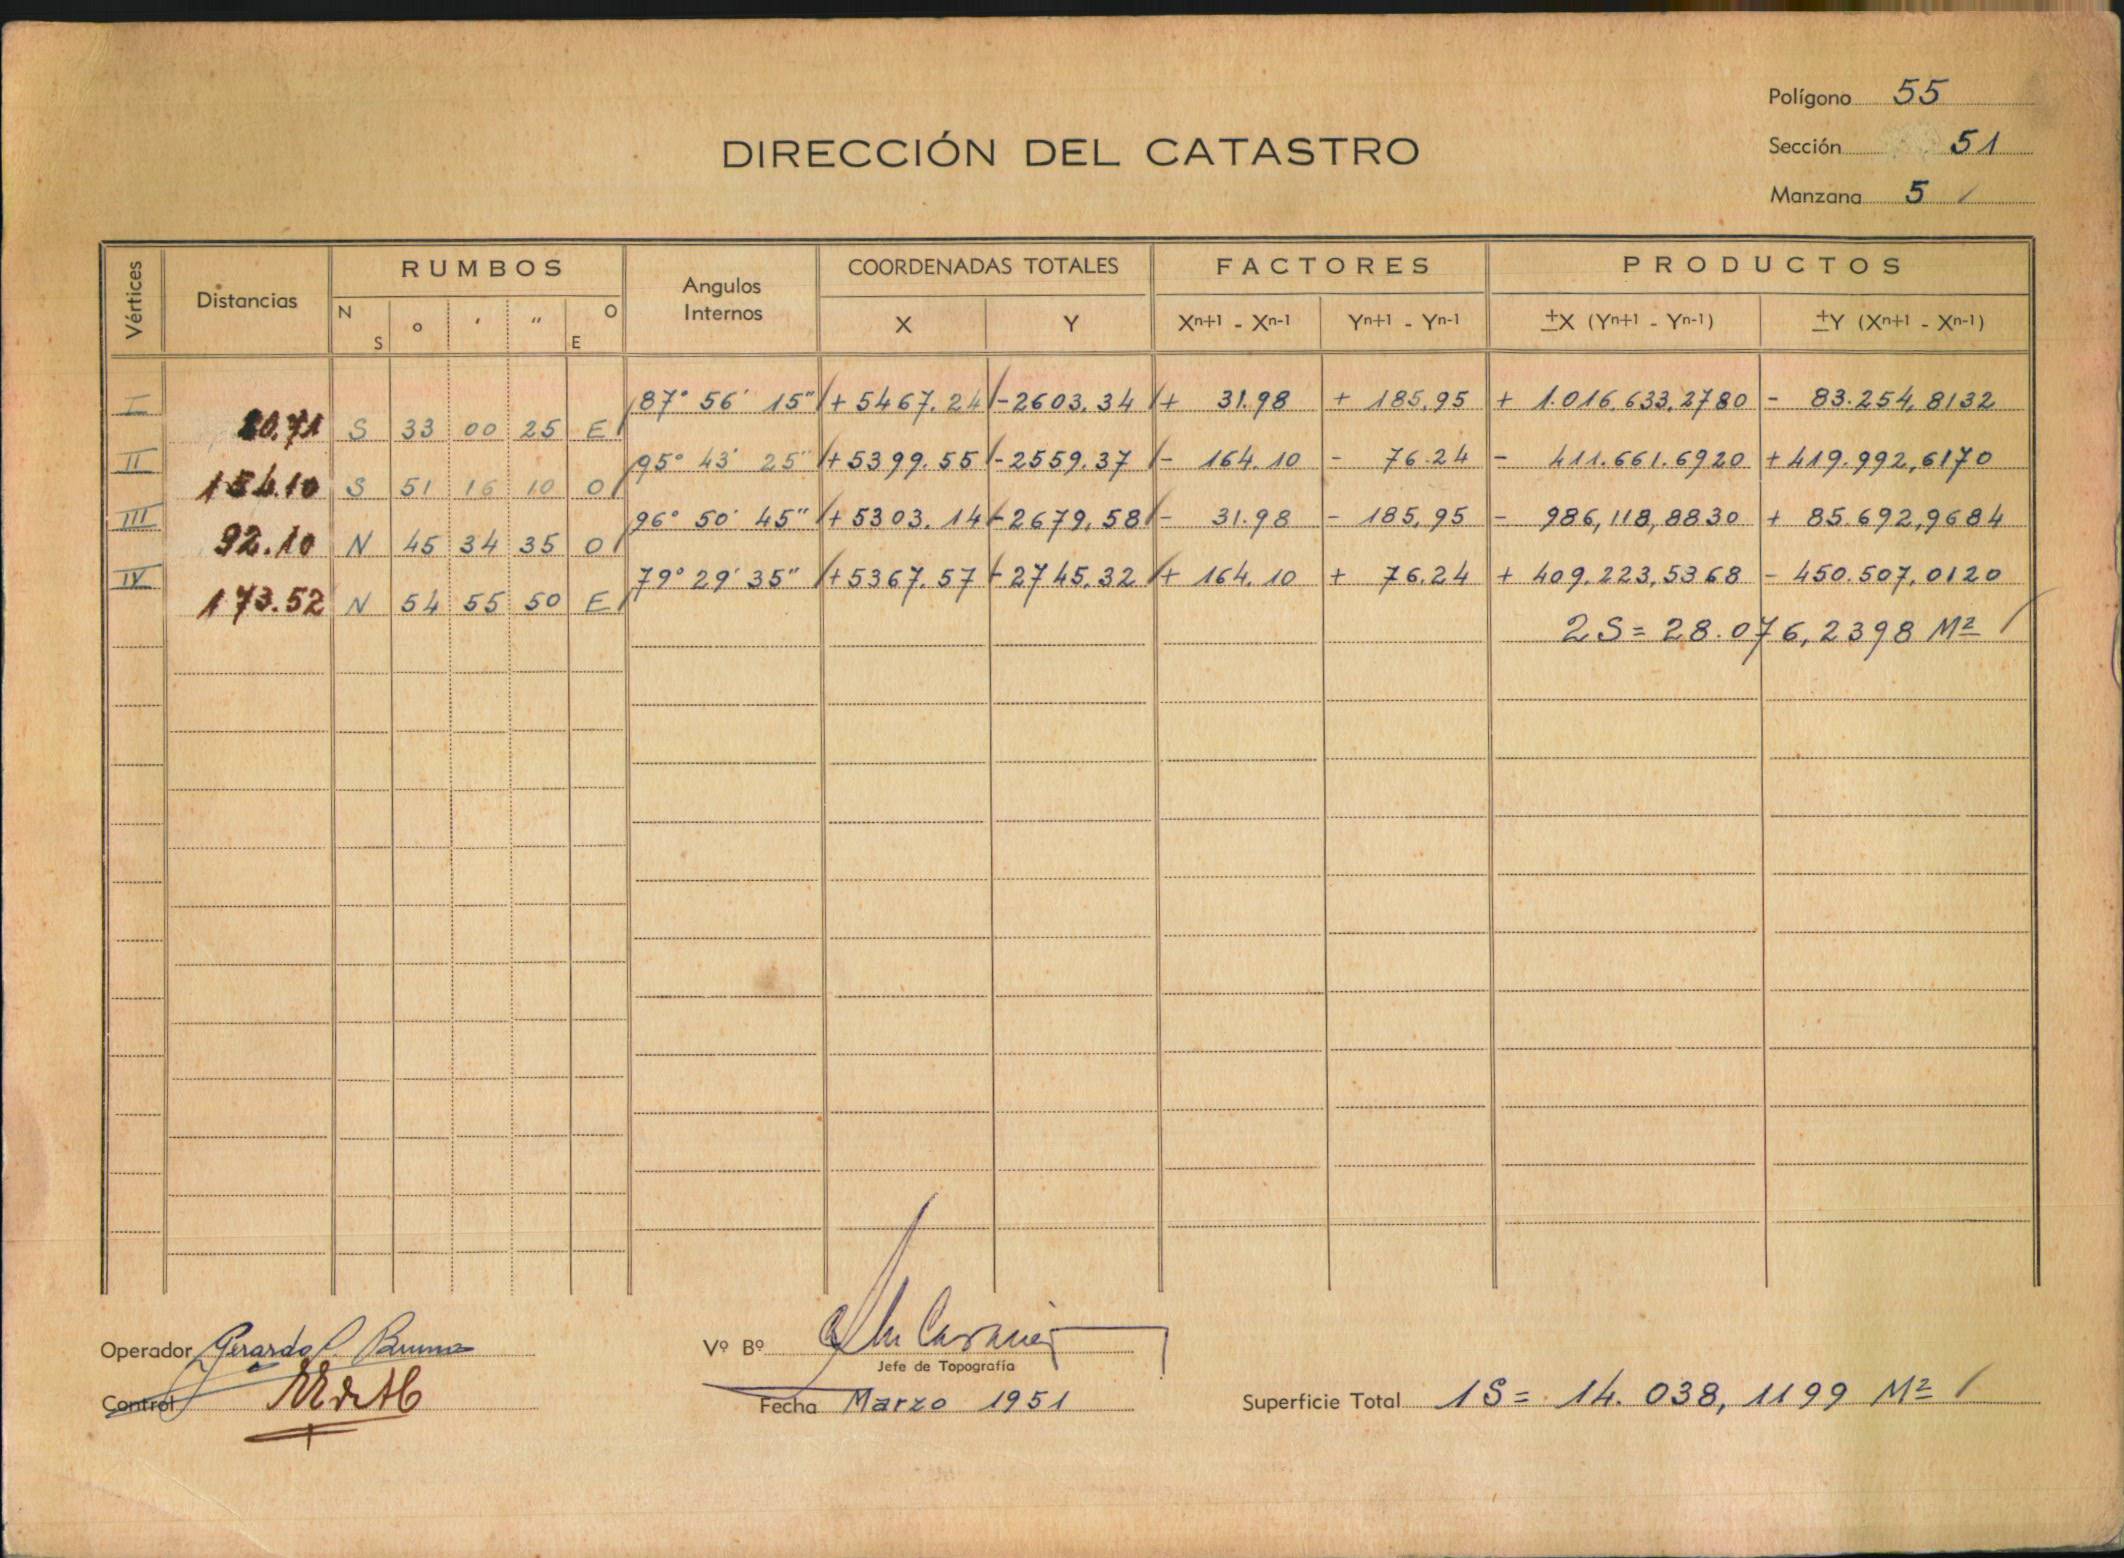 Polígono 55
DIRECCIÓN DEL CATASTRO
Sección 51
Manzana 5
Vértices Distancias RUMBOS Angulos Internos COORDENADAS TOTALES FACTORES PRODUCTOS
N S o ' " O E X Y Xn+1 - Xn-1 Yn+1 - Yn-1 ±X (Yn+1 - Yn-1) ±Y (Xn+1 - Xn-1)
I 87° 56' 15" +5467.24 -2603.34 + 31.98 + 185,95 + 1.016.633,2780 - 83.254,8132
80.71 S 33 00 25 E
II 95° 43' 25" +5399.55 -2559.37 - 164.10 - 76.24 - 411.661.6920 +419.992,6170
154.10 S 51 16 10 O
III 96° 50' 45" +5303.14 -2679,58 - 31.98 - 185,95 - 986,118,8830 + 85.692,9684
92.10 N 45 34 35 O
IV 79° 29' 35" +5367.57 -2745.32 + 164.10 + 76.24 + 409.223,5368 - 450.507,0120
173.52 N 54 55 50 E
2S = 28.076,2398 M²
Operador Gerardo
Vº Bº
Jefe de Topografía
Control
Fecha Marzo 1951
Superficie Total 1S = 14.038,1199 M²